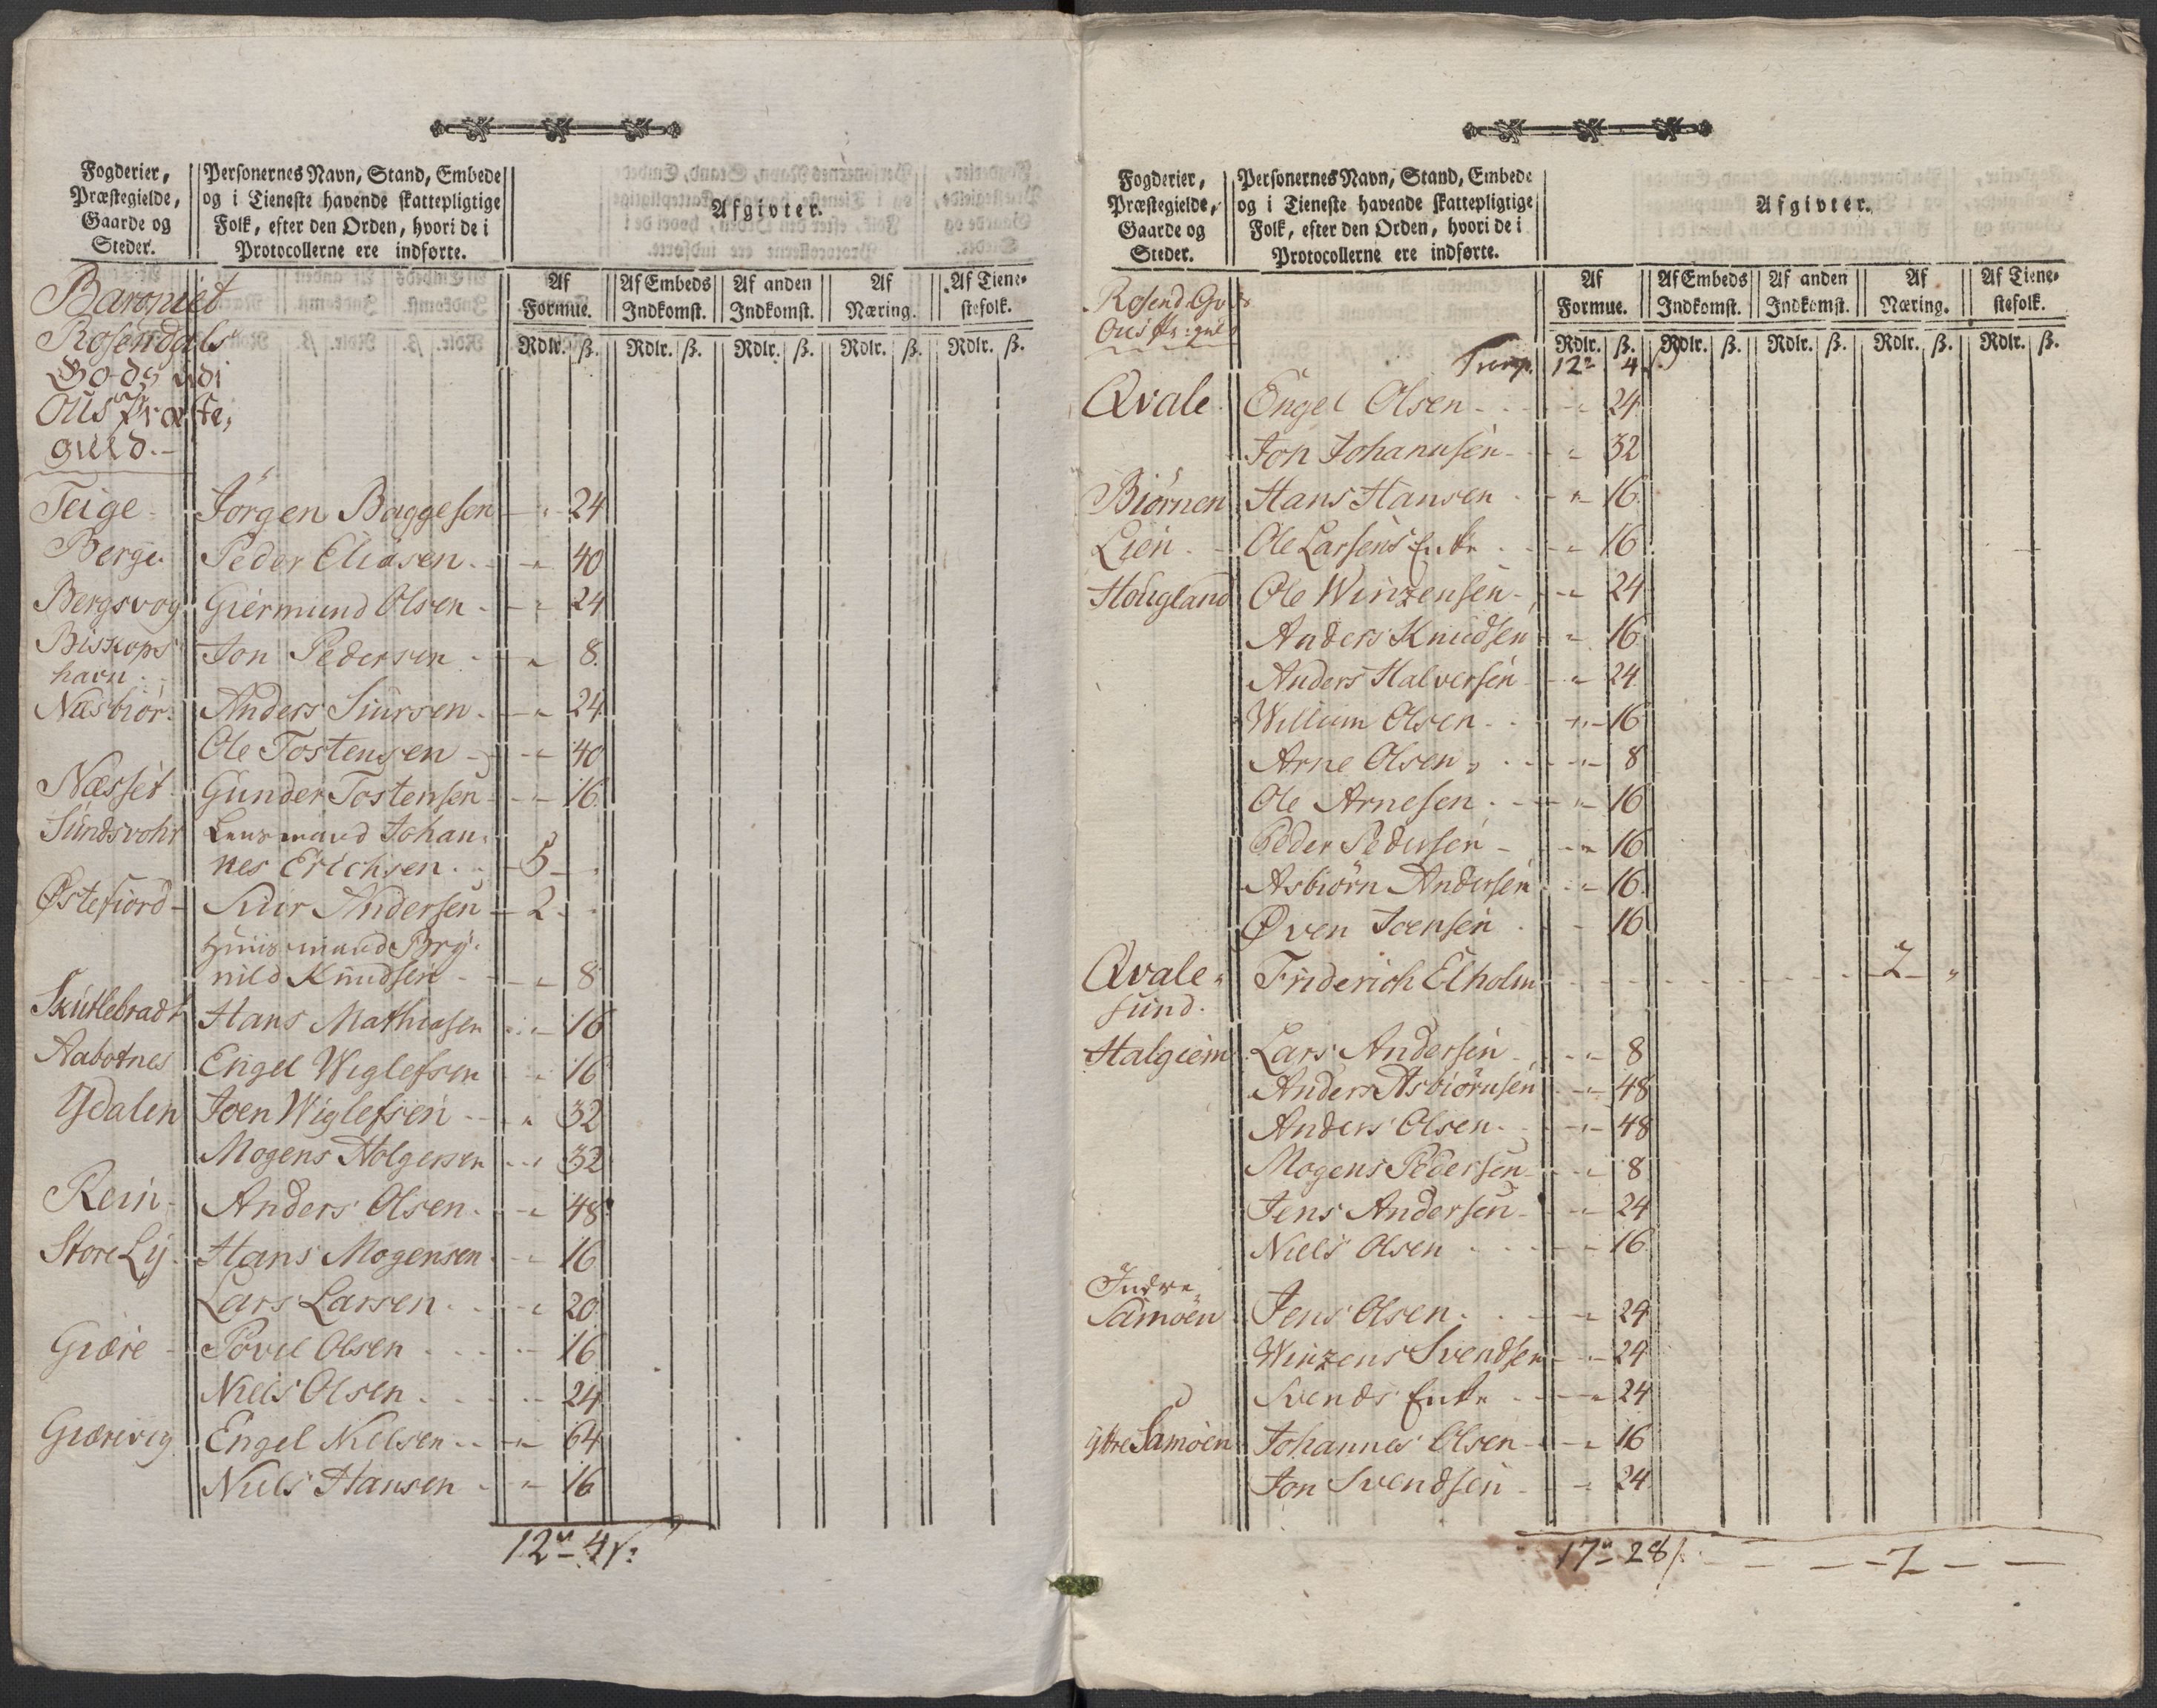 Fogderier,
Præstegielde,
Gaarde og
Steder.
Personernes Navn, Stand, Embede
og i Tieneste havende skattepligtige
Folk, efter den Orden, hvori de i
Protocollerne ere indførte.
Afgivter.
Af Formue. Af Embeds Indkomst. Af anden Indkomst. Af Næring. Af Tienestefolk.
Rdlr. ß. Rdlr. ß. Rdlr. ß. Rdlr. ß. Rdlr. ß.
Baroniet
Rosendals
Gods udi
Ous Præste,
gield.-
Teige - Jörgen Baggesen - " 24
Berge. Peder Eliasen. - " 40
Bergsvog Giermund Olsen - " 24
Biskops
havn. - Jon Pedersen - " 8.
Næsbiör. Anders Siursen. - " 24
Ole Tostensen - " 40
Næsset. Gunder Tostensen - " 16.
Sundsvohr Lensmand Johan-
nes Erichsen. - 5 - "
Østefiord - Siur Andersen - 2 - "
Huusmand Bry-
nild Knudsen - " 8
Skutlebradt Hans Mathiasen - " 16
Aabotnes Engel Wiglefsen - " 16
Ydalen Joen Wiglefsen - " 32
Mogens Holgersen - " 32
Rein - Anders Olsen. - " 48
Store Ly. Hans Mogensen - " 16
Lars Larsen. - " 20
Giære - Povel Olsen - " 16
Niels Olsen. - " 24
Giærevig Engel Nielsen - " 64
Niels Hansen - " 16
12" - 4 ß:
Fogderier,
Præstegielde,
Gaarde og
Steder.
Personernes Navn, Stand, Embede
og i Tieneste havende skattepligtige
Folk, efter den Orden, hvori de i
Protocollerne ere indførte.
Afgivter.
Af Formue. Af Embeds Indkomst. Af anden Indkomst. Af Næring. Af Tienestefolk.
Rdlr. ß. Rdlr. ß. Rdlr. ß. Rdlr. ß. Rdlr. ß.
Rosend. G
Ous Pr: gield
Transp. 12" 4 ß
Qvale. Engel Olsen - " 24
Jon Johannsen - " 32
Biörnen Hans Hansen - " 16.
Lien. - Ole Larsens Enke - " 16.
Hougland Ole Winzensen - " 24
Anders Knudsen - " 16
Anders Halversen - " 24
Willum Olsen - " 16
Arne Olsen - " 8
Ole Arnesen - " 16
Peder Pedersen - " 16
Asbiörn Andersen - " 16.
Øven Joensen - 16
Qvale-
sund. Friderich Elholm - 2 - "
Halgiem Lars Andersen - " 8
Anders Asbiörnsen - " 48
Anders Olsen. - " 48
Mogens Pedersen - " 8
Jens Andersen - " 24
Niels Olsen - " 16.
Indre-
Samöen Jens Olsen. - " 24
Winzens Svendsen - " 24
Svends Enke - " 24
Ytre Samöen Johannes Olsen - " 16
Jon Svendsen - " 24
17" - 28 ß. - 2 -